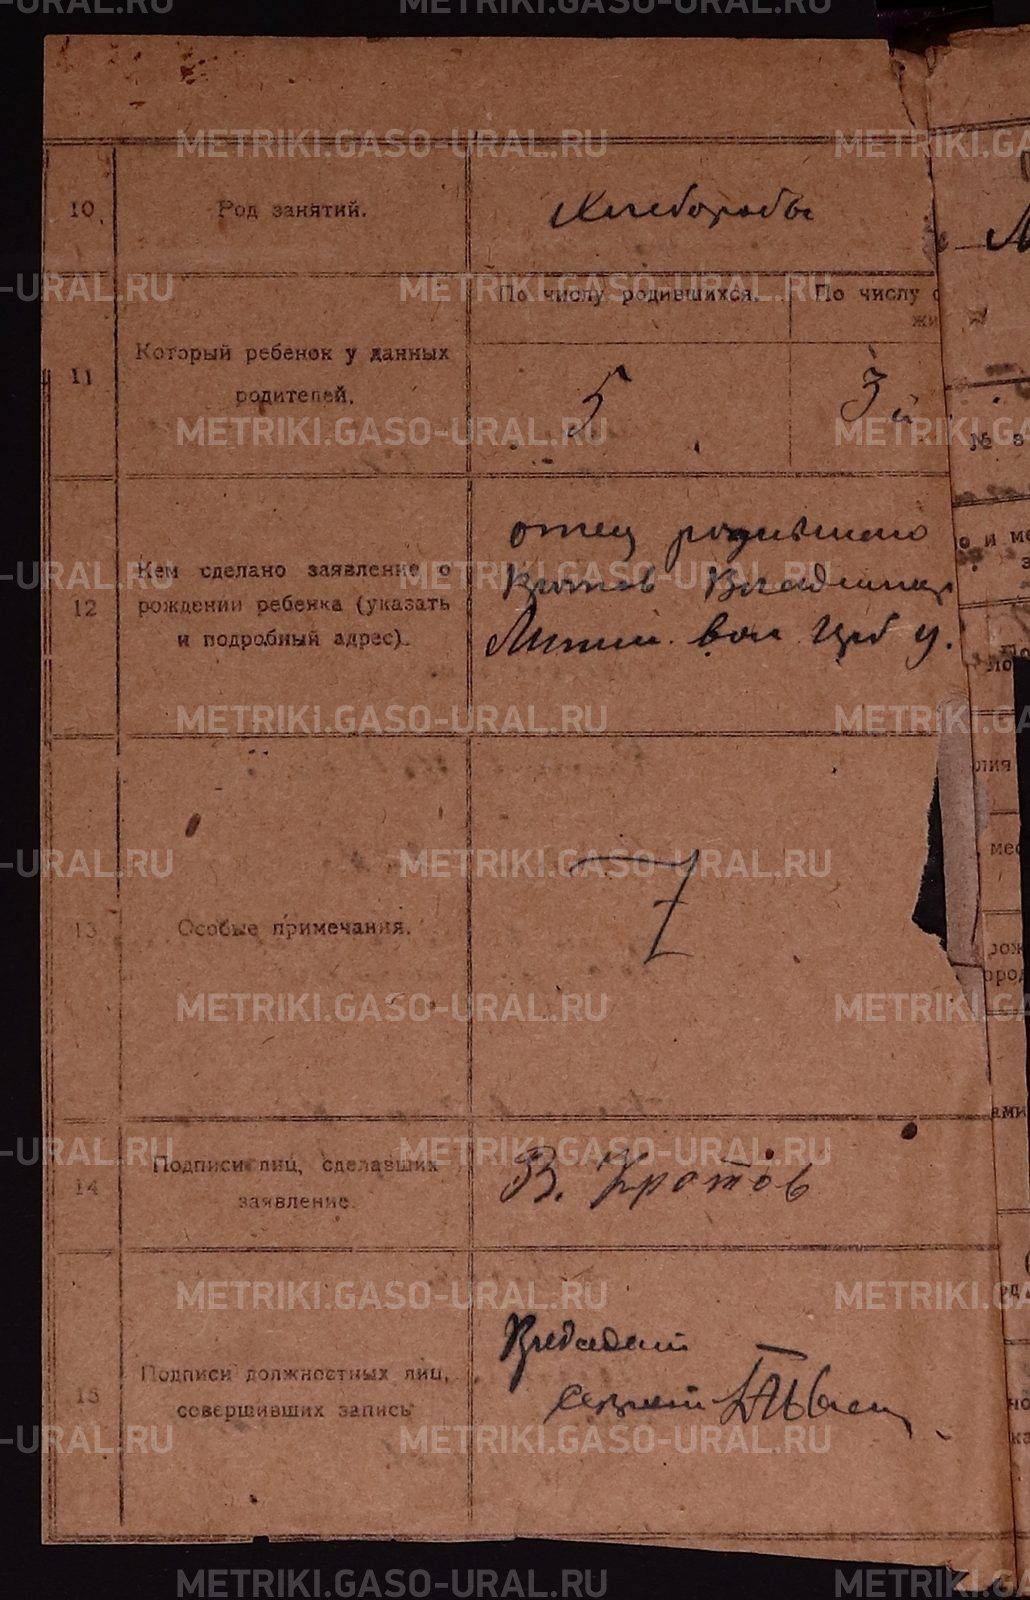 10. Род занятий. Хлеборобы
11 Который ребенок у данных
родителей.
По числу родившихся.
По числу
жи
5
3й
12 Кем сделано заявление о
рождении ребенка (указать
и подробный адрес).
отец родившего
Кротов Владимир
вол Ирб у.
13 Особые примечания.
14 Подписи лиц, сделавших
заявление.
В. Кротов
15 Подписи должностных лиц,
совершивших запись
№ з
METRIKI.GASO-URAL.RU